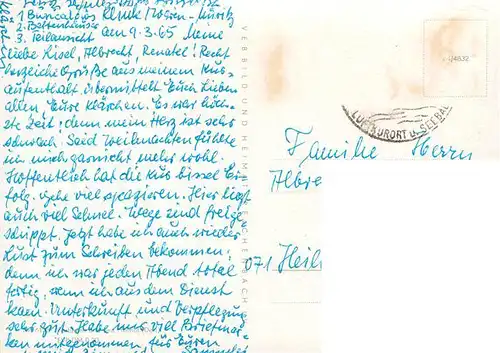 1 Bursaldus Klink Waren-Müritz
2. Bettenhäuser
3. Teilansicht am 9.3.65 Meine
Liebe Lisel, Albrecht, Renate! Recht
herzliche Grüße aus meinem Kur-
aufenthalt übermittelt Euch Lieben
allen, Eure Klärchen. Es war höch-
ste Zeit, denn mein Herz ist sehr
schwach. Seid Weihnachten fühlte
ich mich garnicht mehr wohl.
Hoffentlich hat die Kur bissel Er-
folg. gehe viel spazieren. Hier liegt
auch viel Schnee. Wege sind freige-
schippt. Jetzt habe ich auch wieder
Lust zum Schreiben bekommen,
denn ich war jeden Abend total
fertig, wenn ich aus dem Dienst
kam. Unterkunft und Verpflegung
sehr gut. Habe mir viel Briefmar-
ken mitgenommen für Euren
VERBILD UND HEIMAT REICHENBACH
4832
LUFTKURORT u. SEEBAD
Familie Herrn
Albre
071 Heil